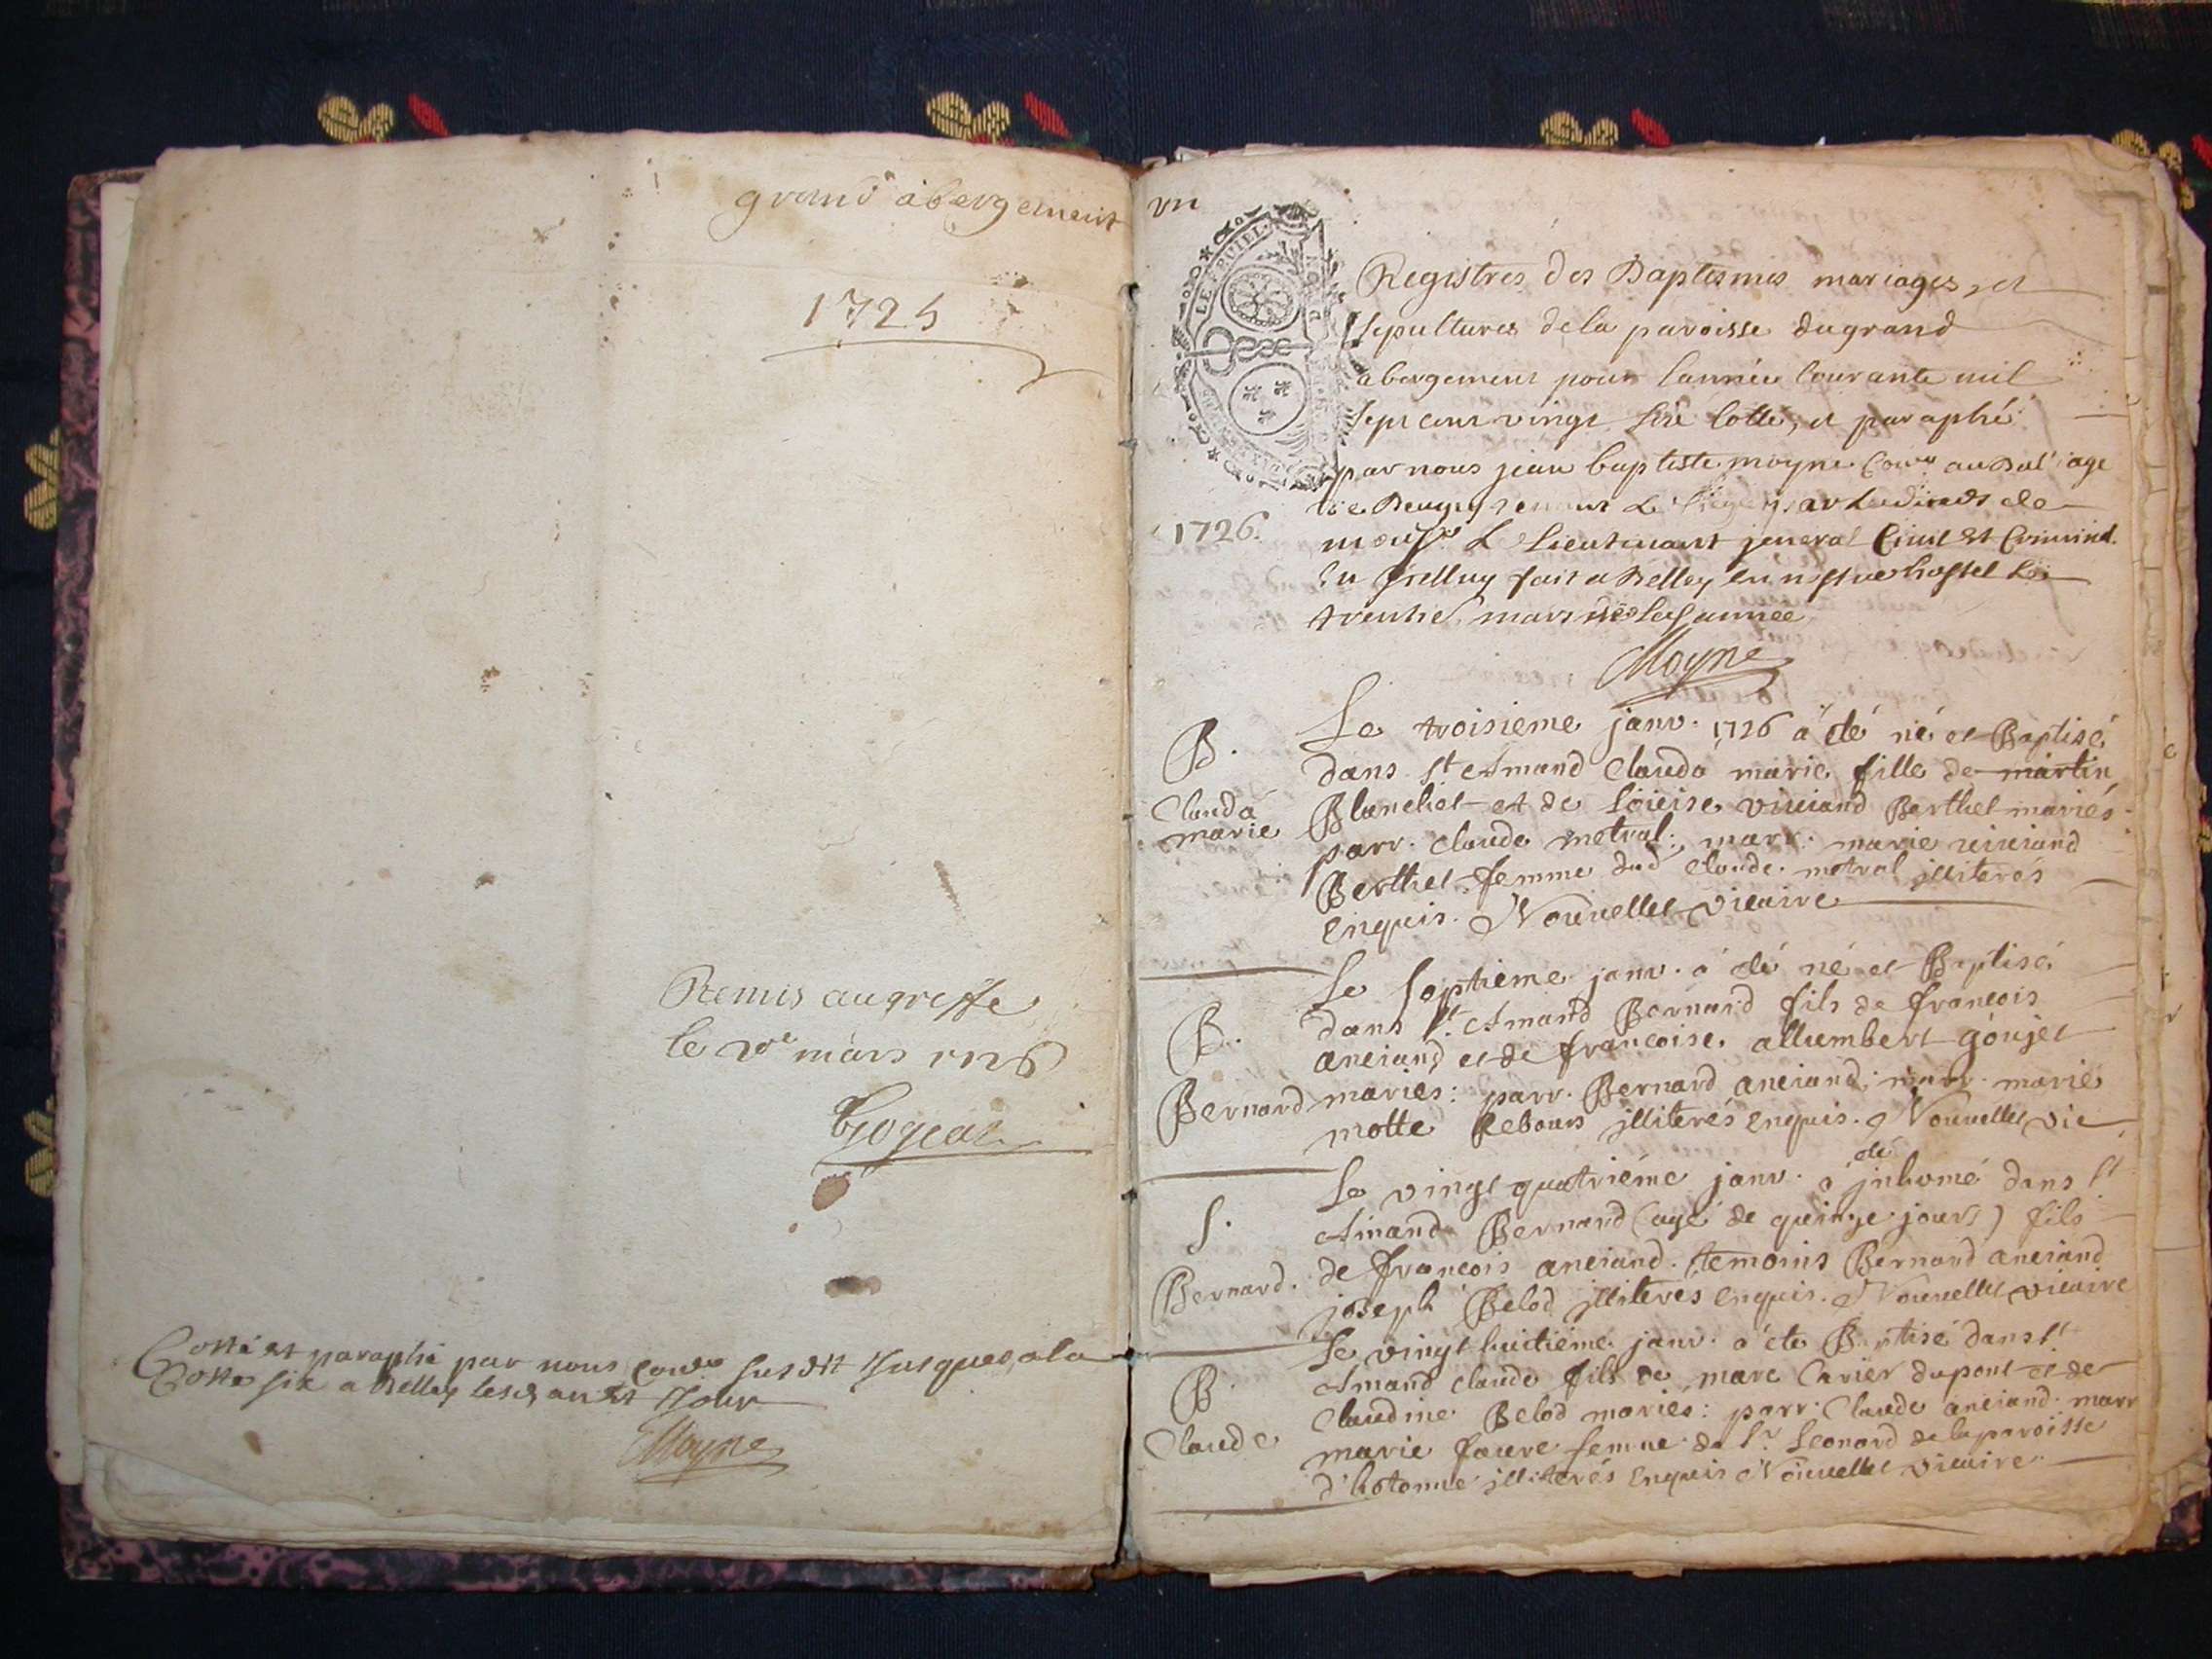 grand abergement
1725
Remis au greffe
le mars 1726
Cotté et paraphé par nous susdit jusques a la
Cotte six a Belley les an et jour
Moyne
un
LE ROUIEL
DIJON
Registres des Baptesmes mariages, et
sepultures de la paroisse du grand
abergement pour lannée courante mil
sept cent vingt six cotté, et paraphé
par nous jean baptiste moyne Conr au Baliage
de Beugey
1726.
monsr Le Lieutenant jeneral Civil et Criminel
fait a Belley en nostre hostel Le
trente mars année
Moyne
B.
Clauda
marie
Le troisieme janv. 1726 a eté né et Baptisé
dans st Amand Clauda marie fille de martin
Blanchet et de Loüise viviand Berthet mariés.
parr. Claude metral: marr. marie viviand
Berthet femme dud Claude metral illiterés
enquis. Nouvellet vicaire
B.
Bernard
Le septieme janv. a eté né et Baptisé
dans st Amand Bernard fils de francois
anciand et de francoise allumbert goujet
mariés: parr. Bernard anciand: marr. marie
motte Rebours illiterés enquis. Nouvellet vic
S.
Bernard.
Le vingt quatriéme janv. a eté inhumé dans st
Amand Bernard (agé de quinze jours) fils
de francois anciand. temoins Bernard anciand
joseph Belod illiterés enquis. Nouvellet vicaire
B
Claude
Le vingt huitiéme janv. a eté Baptisé dans st
Amand claude fils de marc Carrier dupont et de
Claudine Belod mariés: parr. Claude anciand. marr
marie favre femme de Sr Leonard de la paroisse
d'hotonne illiterés enquis Nouvellet vicaire.